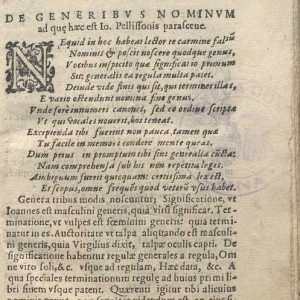 DE GENERIBVS NOMINVM
ad quę hæc est Io. Pellissonis parasceue.
NEquid in hoc habeat lector re carmine falsũ
Nominis & possit noscere quodque genus,
Vocibus inspicito quæ significatio primum
Sit: generali ea regula multa patet.
Deinde vide finis qui sit, qui terminet illas,
E vario ostendunt nomina fine genus.
Vnde ferè innumeri canones, sed ex ordine scriptæ
Vt qui vocales nouerit, hos teneat.
Excipienda tibi fuerint non pauca, tamen quæ
Tu facile in memori condere mente queas.
Dum prius in promptum tibi sint generalia cũcta:
Nam comprehensa sub his non repetita leges.
Ambiguum fuerit quicquam: certissima lex est,
Et scopus, omne frequẽs quod veterũ vsus habet.
Genera tribus modis noscuntur: Significatione, vt
Ioannes est masculini generis, quia virũ significat. Ter-
minatione, vt vulpes est fœminini generis: quia termi-
natur in es. Auctoritate vt talpa aliquando est masculi-
ni generis, quia Virgilius dixit, talpæ oculis capti. De
significatione habentur regulæ generales à regula, Om
ne viro soli, &c. vsque ad regulam, Hæc dara, &c. A
qua speciales terminationum regulæ ad huius primi li-
bri finem vsque patent. Quærenti igitur tibi alicuius